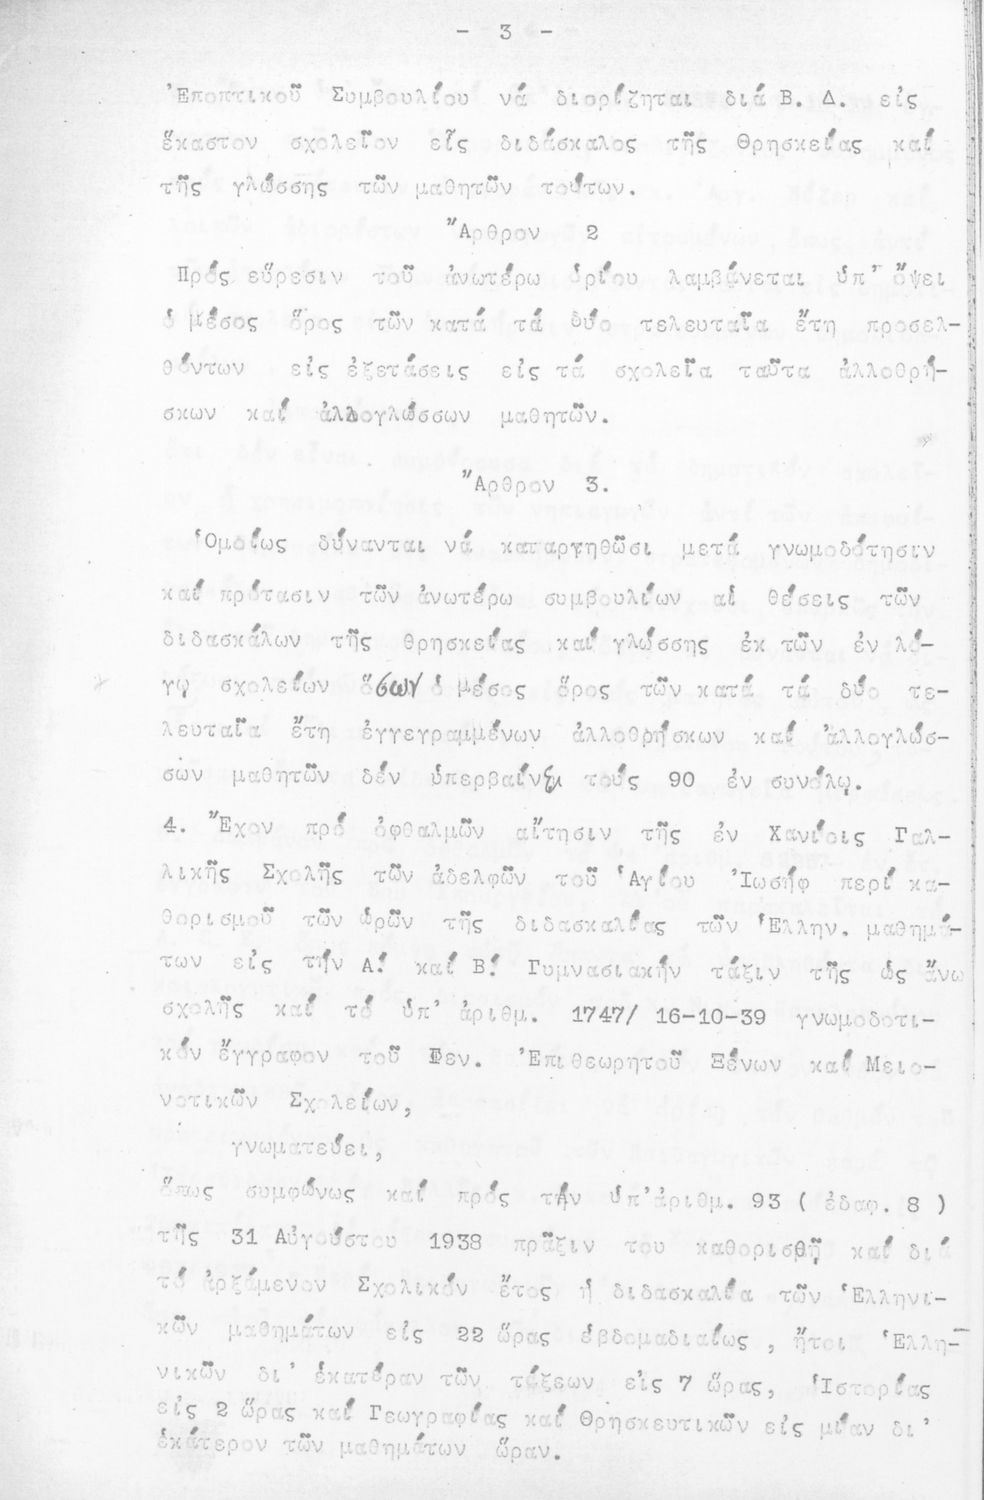 - 3 -
Ἐποπτικοῦ Συμβουλίου νά διορίζηται διά Β. Δ. εἰς
ἕκαστον σχολεῖον εἷς διδάσκαλος τῆς Θρησκείας καί
τῆς γλώσσης τῶν μαθητῶν τούτων.
Ἄρθρον 2
Πρός εὕρεσιν τοῦ ἀνωτέρω ὁρίου λαμβάνεται ὑπ' ὄψει
ὁ μέσος ὅρος τῶν κατά τά δύο τελευταῖα ἔτη προσελ-
θόντων εἰς ἐξετάσεις εἰς τά σχολεῖα ταῦτα ἀλλοθρή-
σκων καί ἀλλογλώσσων μαθητῶν.
Ἄρθρον 3.
Ὁμοίως δύνανται νά καταργηθῶσι μετά γνωμοδότησιν
καί πρότασιν τῶν ἀνωτέρω συμβουλίων αἱ θέσεις τῶν
διδασκάλων τῆς θρησκείας καί γλώσσης ἐκ τῶν ἐν λό-
γῳ σχολείων ὅσων ὁ μέσος ὅρος τῶν κατά τά δύο τε-
λευταῖα ἔτη ἐγγεγραμμένων ἀλλοθρήσκων καί ἀλλογλώσ-
σων μαθητῶν δέν ὑπερβαίνει τούς 90 ἐν συνόλῳ.
4. Ἔχον πρό ὀφθαλμῶν αἴτησιν τῆς ἐν Χανίοις Γαλ-
λικῆς Σχολῆς τῶν ἀδελφῶν τοῦ Ἁγίου Ἰωσήφ περί κα-
θορισμοῦ τῶν ὡρῶν τῆς διδασκαλίας τῶν Ἑλλην. μαθημά-
των εἰς τήν Α΄. καί Β΄. Γυμνασιακήν τάξιν τῆς ὡς ἄνω
σχολῆς καί τό ὑπ' ἀριθμ. 1747/ 16-10-39 γνωμοδοτι-
κόν ἔγγραφον τοῦ Γεν. Ἐπιθεωρητοῦ Ξένων καί Μειο-
νοτικῶν Σχολείων,
γνωματεύει,
ὅπως συμφώνως καί πρός τήν ὑπ'ἀριθμ. 93 ( ἐδαφ. 8 )
τῆς 31 Αὐγούστου 1938 πρᾶξιν του καθορισθῇ καί διά
τό ἀρξάμενον Σχολικόν ἔτος ἡ διδασκαλία τῶν Ἑλληνι-
κῶν μαθημάτων εἰς 22 ὥρας ἑβδομαδιαίως, ἤτοι Ἑλλη-
νικῶν δι' ἑκατέραν τῶν τάξεων εἰς 7 ὥρας, Ἱστορίας
εἰς 2 ὥρας καί Γεωγραφίας καί Θρησκευτικῶν εἰς μίαν δι'
ἑκάτερον τῶν μαθημάτων ὥραν.